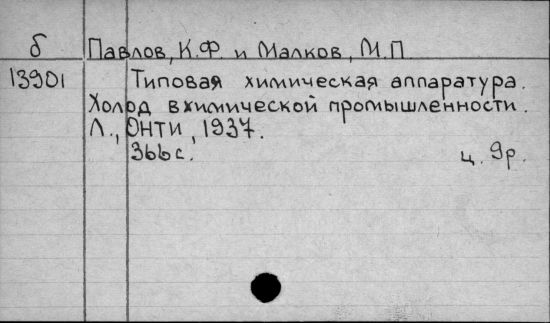 б Павлов, К.Ф. и Малков, М.П.
13901 Типовая химическая аппаратура.
Холод в химической промышленности.
Л., ОНТИ, 1937.
366 с. ц. 9р.